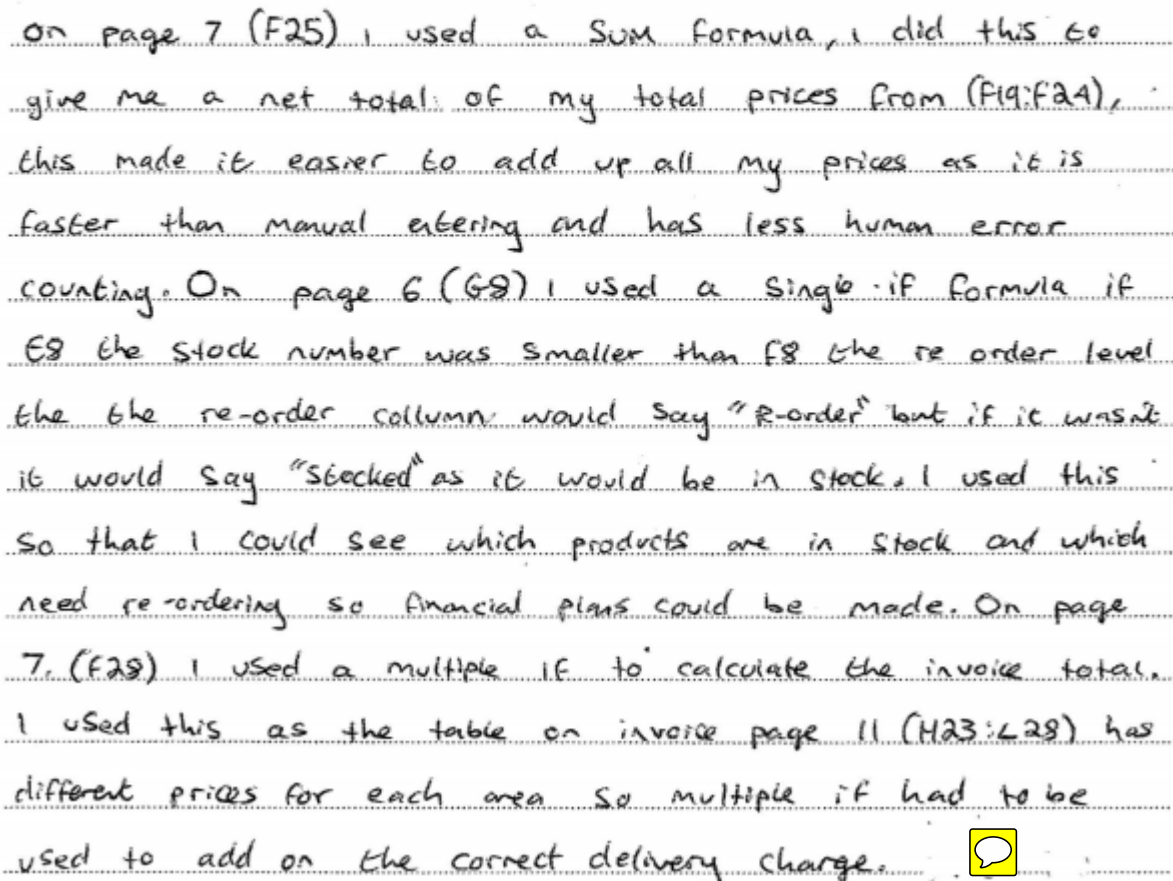 on page 7 (F25) i used a SUM formula, i did this to
give me a net total of my total prices from (F19:F24),
this made it easier to add up all my prices as it is
faster than manual entering and has less human error
counting. On page 6 (G8) i used a single if formula if
E8 the stock number was smaller than F8 the re order level
the the re-order collumn would say "R-order" but if it wasnt
it would say "Stocked" as it would be in stock. I used this
so that i could see which products are in stock and which
need re-ordering so financial plans could be made. On page
7. (F28) I used a multiple if to calculate the invoice total.
I used this as the table on invoice page 11 (H23:L28) has
different prices for each area so multiple if had to be
used to add on the correct delivery charge.